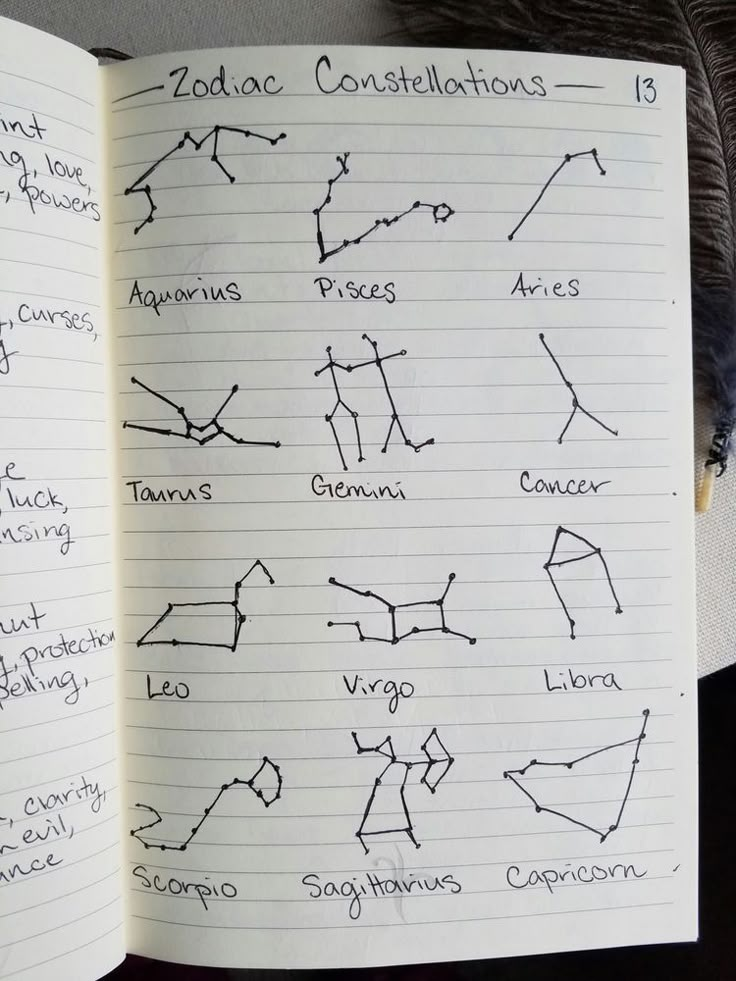 — Zodiac Constellations — 13
Aquarius Pisces Aries
Taurus Gemini Cancer
Leo Virgo Libra
Scorpio Sagittarius Capricorn
love,
powers
curses,
luck,
protection
clarity,
evil,